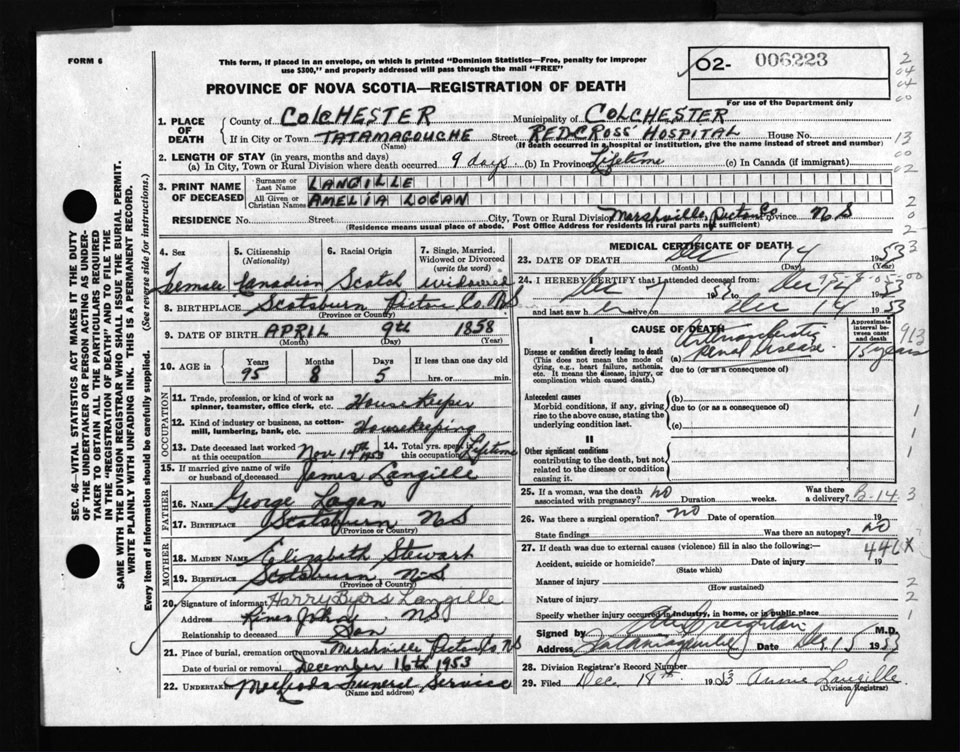 FORM 6
This form, if placed in an envelope, on which is printed "Dominion Statistics—Free, penalty for improper
use $300," and properly addressed will pass through the mail "FREE"
02- 006223
For use of the Department only
PROVINCE OF NOVA SCOTIA—REGISTRATION OF DEATH
1. PLACE OF DEATH
County of COLCHESTER Municipality of COLCHESTER
If in City or Town TATAMAGOUCHE Street RED CROSS HOSPITAL House No.
(Name) (If death occurred in a hospital or institution, give the name instead of street and number)
2. LENGTH OF STAY (in years, months and days)
(a) In City, Town or Rural Division where death occurred 9 days (b) In Province Lifetime (c) In Canada (if immigrant)
3. PRINT NAME OF DECEASED
Surname or Last Name LANGILLE
All Given or Christian Names AMELIA LOGAN
RESIDENCE No. Street City, Town or Rural Division Marshville, Pictou Co Province N S
(Residence means usual place of abode. Post Office Address for residents in rural parts not sufficient)
4. Sex Female
5. Citizenship (Nationality) Canadian
6. Racial Origin Scotch
7. Single, Married, Widowed or Divorced (write the word) Widowed
8. BIRTHPLACE Scotsburn Pictou Co. NS
(Province or Country)
9. DATE OF BIRTH APRIL 9th 1858
(Month) (Day) (Year)
10. AGE in Years 95 Months 8 Days 5 If less than one day old hrs. or min.
OCCUPATION
11. Trade, profession, or kind of work as spinner, teamster, office clerk, etc. House Keeper
12. Kind of industry or business, as cotton-mill, lumbering, bank, etc. Housekeeping
13. Date deceased last worked at this occupation Nov 14th 1953
14. Total yrs. spent in this occupation Lifetime
15. If married give name of wife or husband of deceased James Langille
FATHER
16. NAME George Logan
17. BIRTHPLACE Scotsburn NS
(Province or Country)
MOTHER
18. MAIDEN NAME Elizabeth Stewart
19. BIRTHPLACE Scotsburn N-S
(Province or Country)
20. Signature of informant Harry Byers Langille
Address River John NS
Relationship to deceased Son
21. Place of burial, cremation or removal Marshville Pictou Co. NS
Date of burial or removal December 16th 1953
22. UNDERTAKER McLeods Funeral Service
(Name and address)
MEDICAL CERTIFICATE OF DEATH
23. DATE OF DEATH Dec 14 1953
(Month) (Day) (Year)
24. I HEREBY CERTIFY that I attended deceased from
Dec 7 1953 to Dec 14 1953
and last saw h alive on Dec 14 1953
CAUSE OF DEATH
Approximate interval between onset and death
I
Disease or condition directly leading to death
(This does not mean the mode of dying, e.g., heart failure, asthenia, etc. It means the disease, injury, or complication which caused death.)
(a) renal disease. 15 years
due to (or as a consequence of)
Antecedent causes
Morbid conditions, if any, giving rise to the above cause, stating the underlying condition last.
(b)
due to (or as a consequence of)
(c)
II
Other significant conditions
contributing to the death, but not related to the disease or condition causing it.
25. If a woman, was the death associated with pregnancy? no Duration weeks. Was there a delivery? B-14
26. Was there a surgical operation? no Date of operation 19
State findings Was there an autopsy? no
27. If death was due to external causes (violence) fill in also the following:— 446X
Accident, suicide or homicide? Date of injury 19
(State which)
Manner of injury
(How sustained)
Nature of injury
Specify whether injury occurred in industry, in home, or in public place
Signed by Creighton M.D.
Address Tatamagouche Date Dec 15 1953
28. Division Registrar's Record Number
29. Filed Dec. 18th 1953 Annie Langille
(Division Registrar)
SEC. 46—VITAL STATISTICS ACT MAKES IT THE DUTY
OF THE UNDERTAKER OR PERSON ACTING AS UNDER-
TAKER TO OBTAIN ALL THE PARTICULARS REQUIRED
IN THE "REGISTRATION OF DEATH" AND TO FILE THE
SAME WITH THE DIVISION REGISTRAR WHO SHALL ISSUE THE BURIAL PERMIT.
WRITE PLAINLY WITH UNFADING INK. THIS IS A PERMANENT RECORD.
Every item of information should be carefully supplied. (See reverse side for instructions.)
2
04
04
00
13
00
02
2
0
2
3
913
1
1
1
3
2
2
1